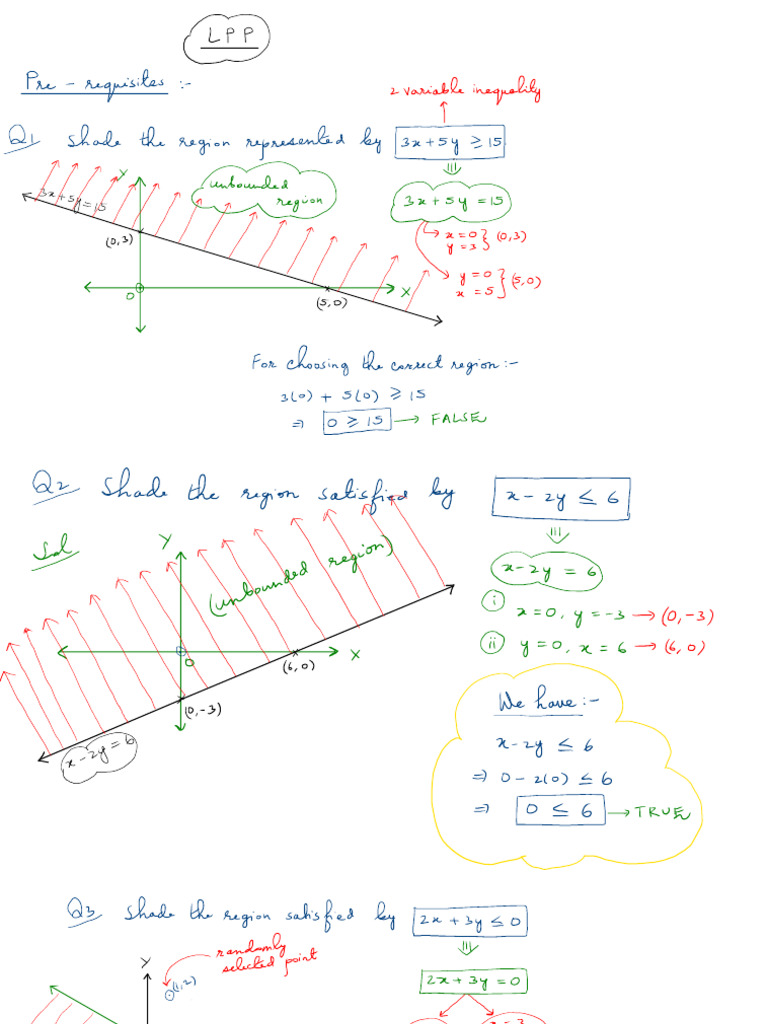 LPP
Pre - requisites :-
2 variable inequality
Q1 Shade the region represented by 3x+5y ≥ 15
3x+5y=15
Y
unbounded
region
3x+5y=15
(0,3)
x=0
y=3 } (0,3)
O
X
(5,0)
y=0
x=5 } (5,0)
For choosing the correct region:-
3(0) + 5(0) ≥ 15
⇒ 0 ≥ 15 → FALSE
Q2 Shade the region satisfied by x - 2y ≤ 6
Sol
Y
(unbounded region)
x-2y = 6
i x=0, y=-3 → (0,-3)
ii y=0, x=6 → (6,0)
O
(6,0)
X
(0,-3)
x-2y=6
We have:-
x-2y ≤ 6
⇒ 0-2(0) ≤ 6
⇒ 0 ≤ 6 → TRUE
Q3 Shade the region satisfied by 2x+3y ≤ 0
Y
randomly
selected point
(1,2)
2x+3y=0
x=3